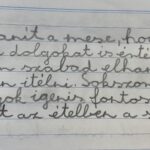 anít a mese, ho
dolgokat is é
n szabad elha
n ítélni. Sokszo
ok igenis fontos
t az ételben a s